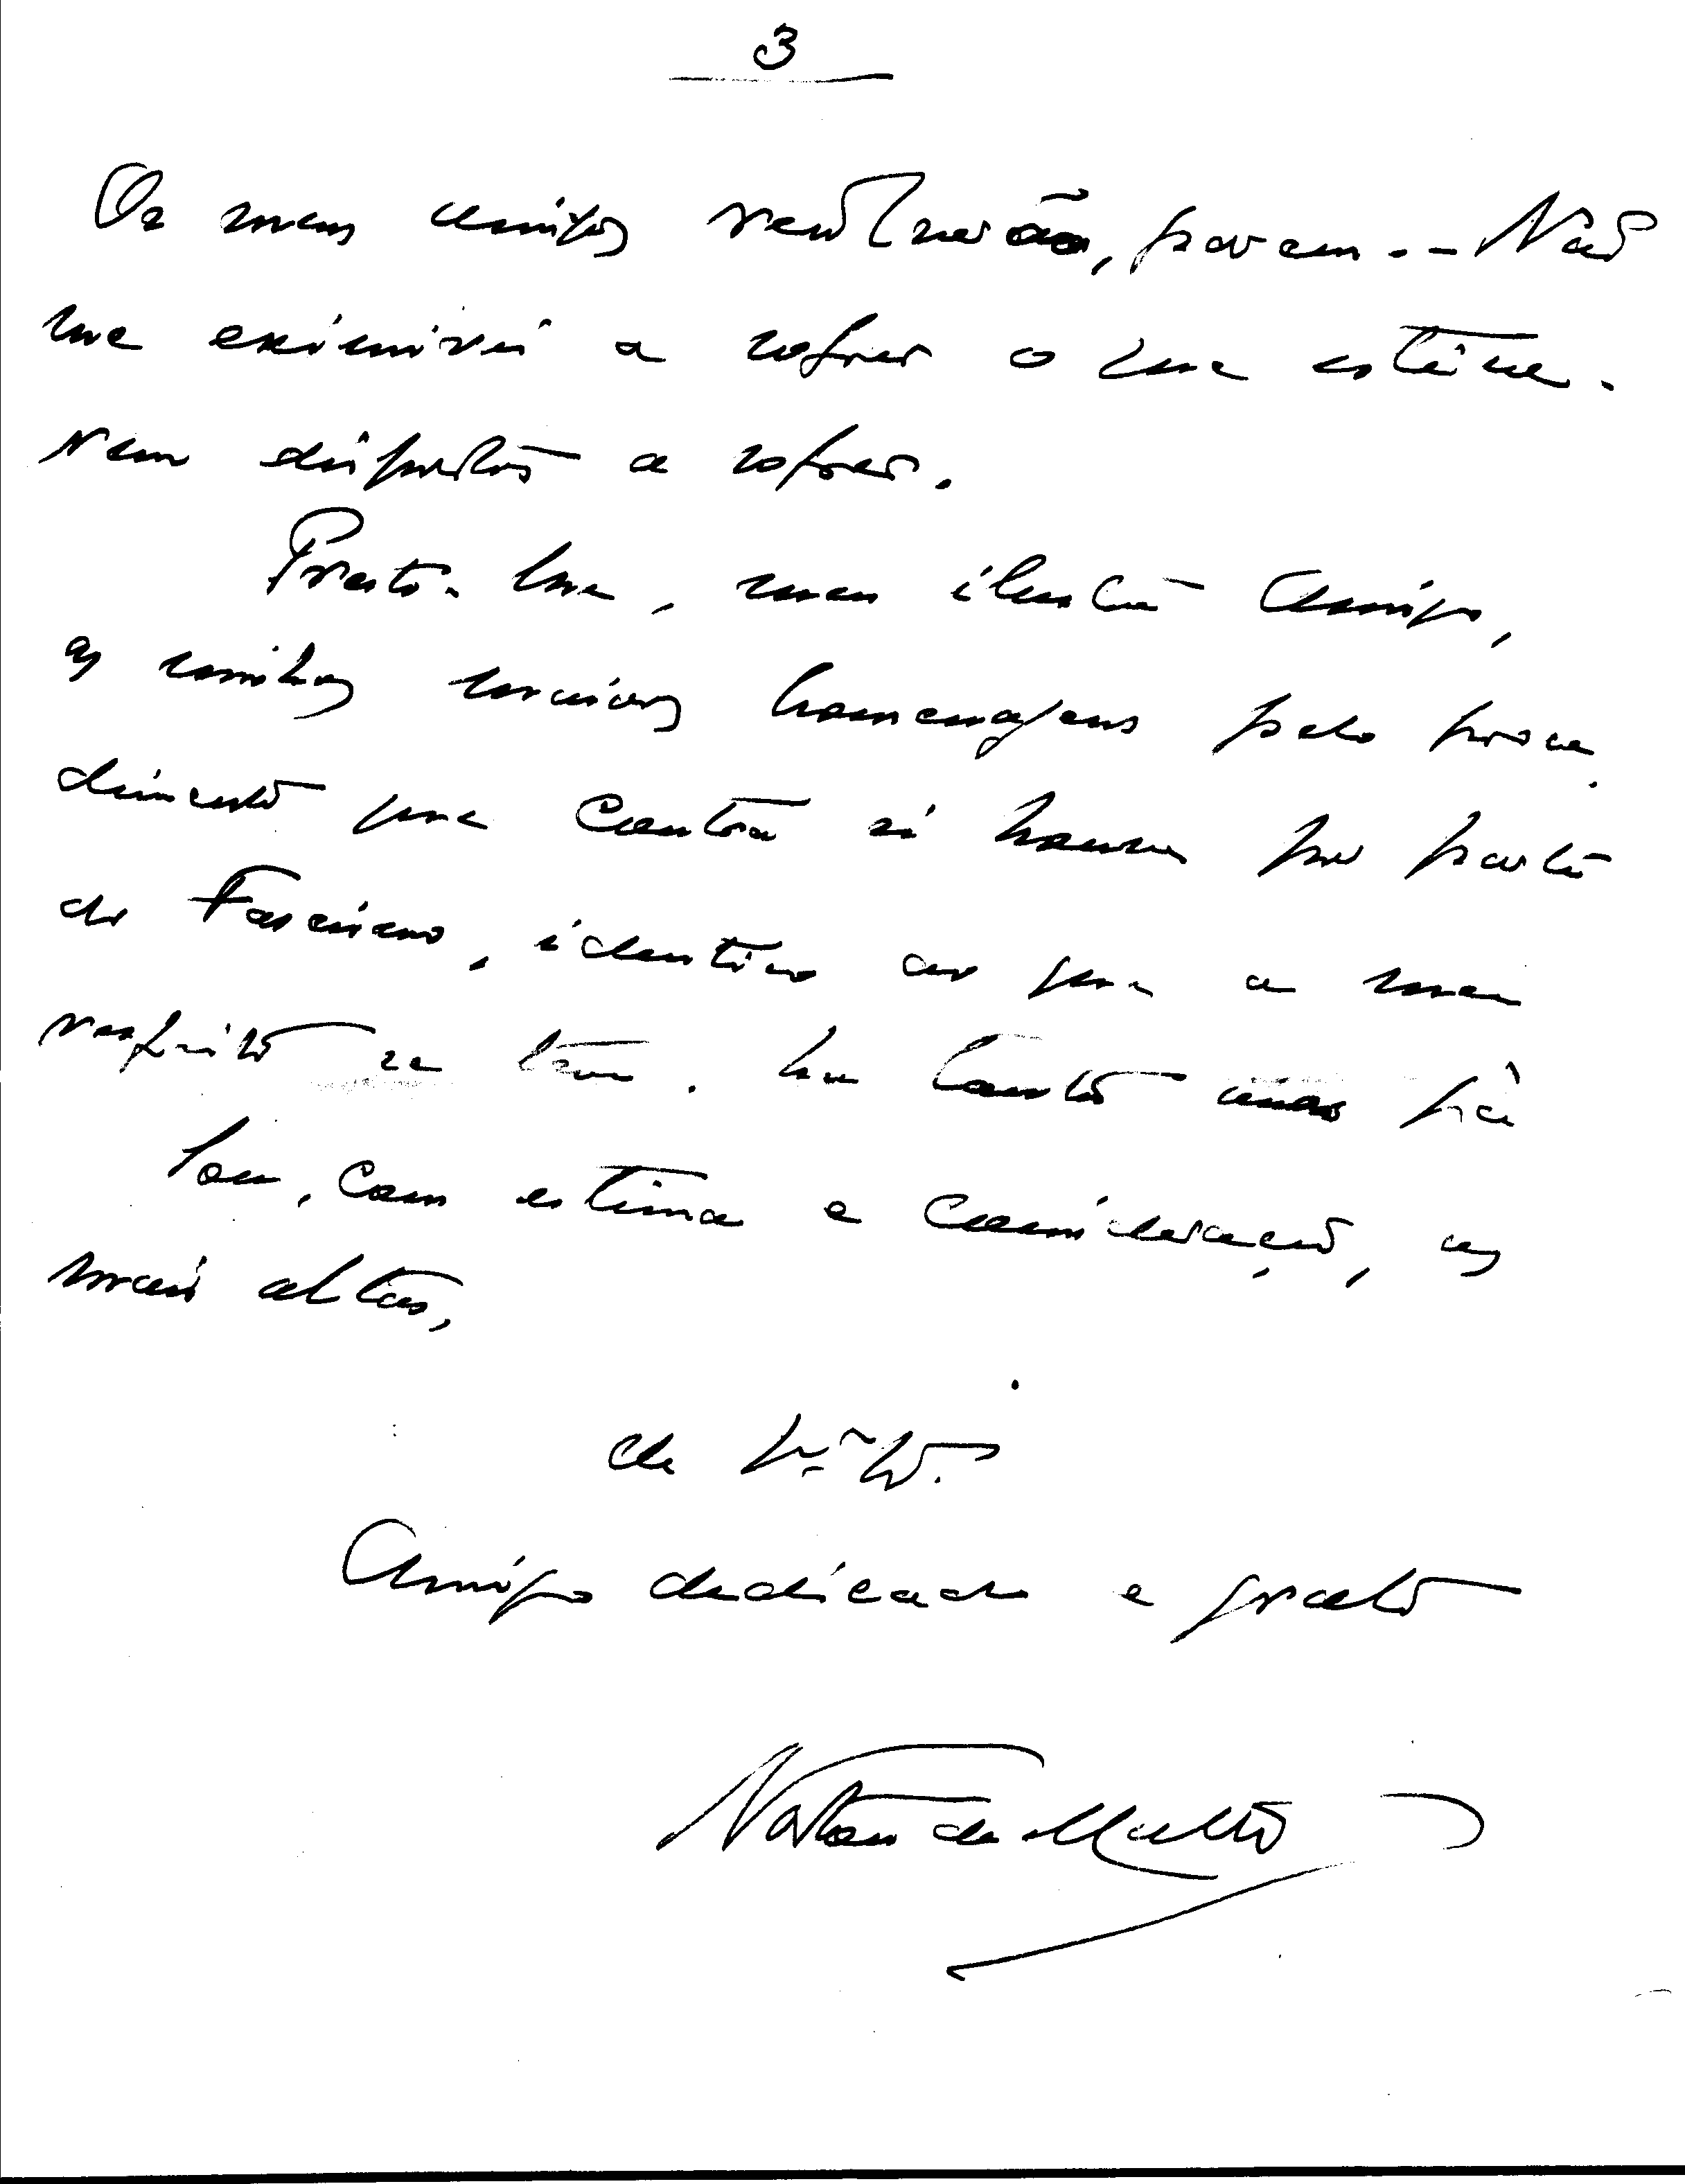 3
Os meus amigos resolverão, porem. - Não
me eximirei a sofrer o que estive-
rem dispostos a sofrer.
Presto-lhe, meu ilustre Amigo,
as minhas maiores homenagens pelo proce-
dimento que contra si houve por parte
do Fascismo, identico ao que a meu
respeito se teve, ha tanto
Sou, com estima e consideração, as
mais altas,
de V.
Amigo dedicado e grato
Norton de Mattos